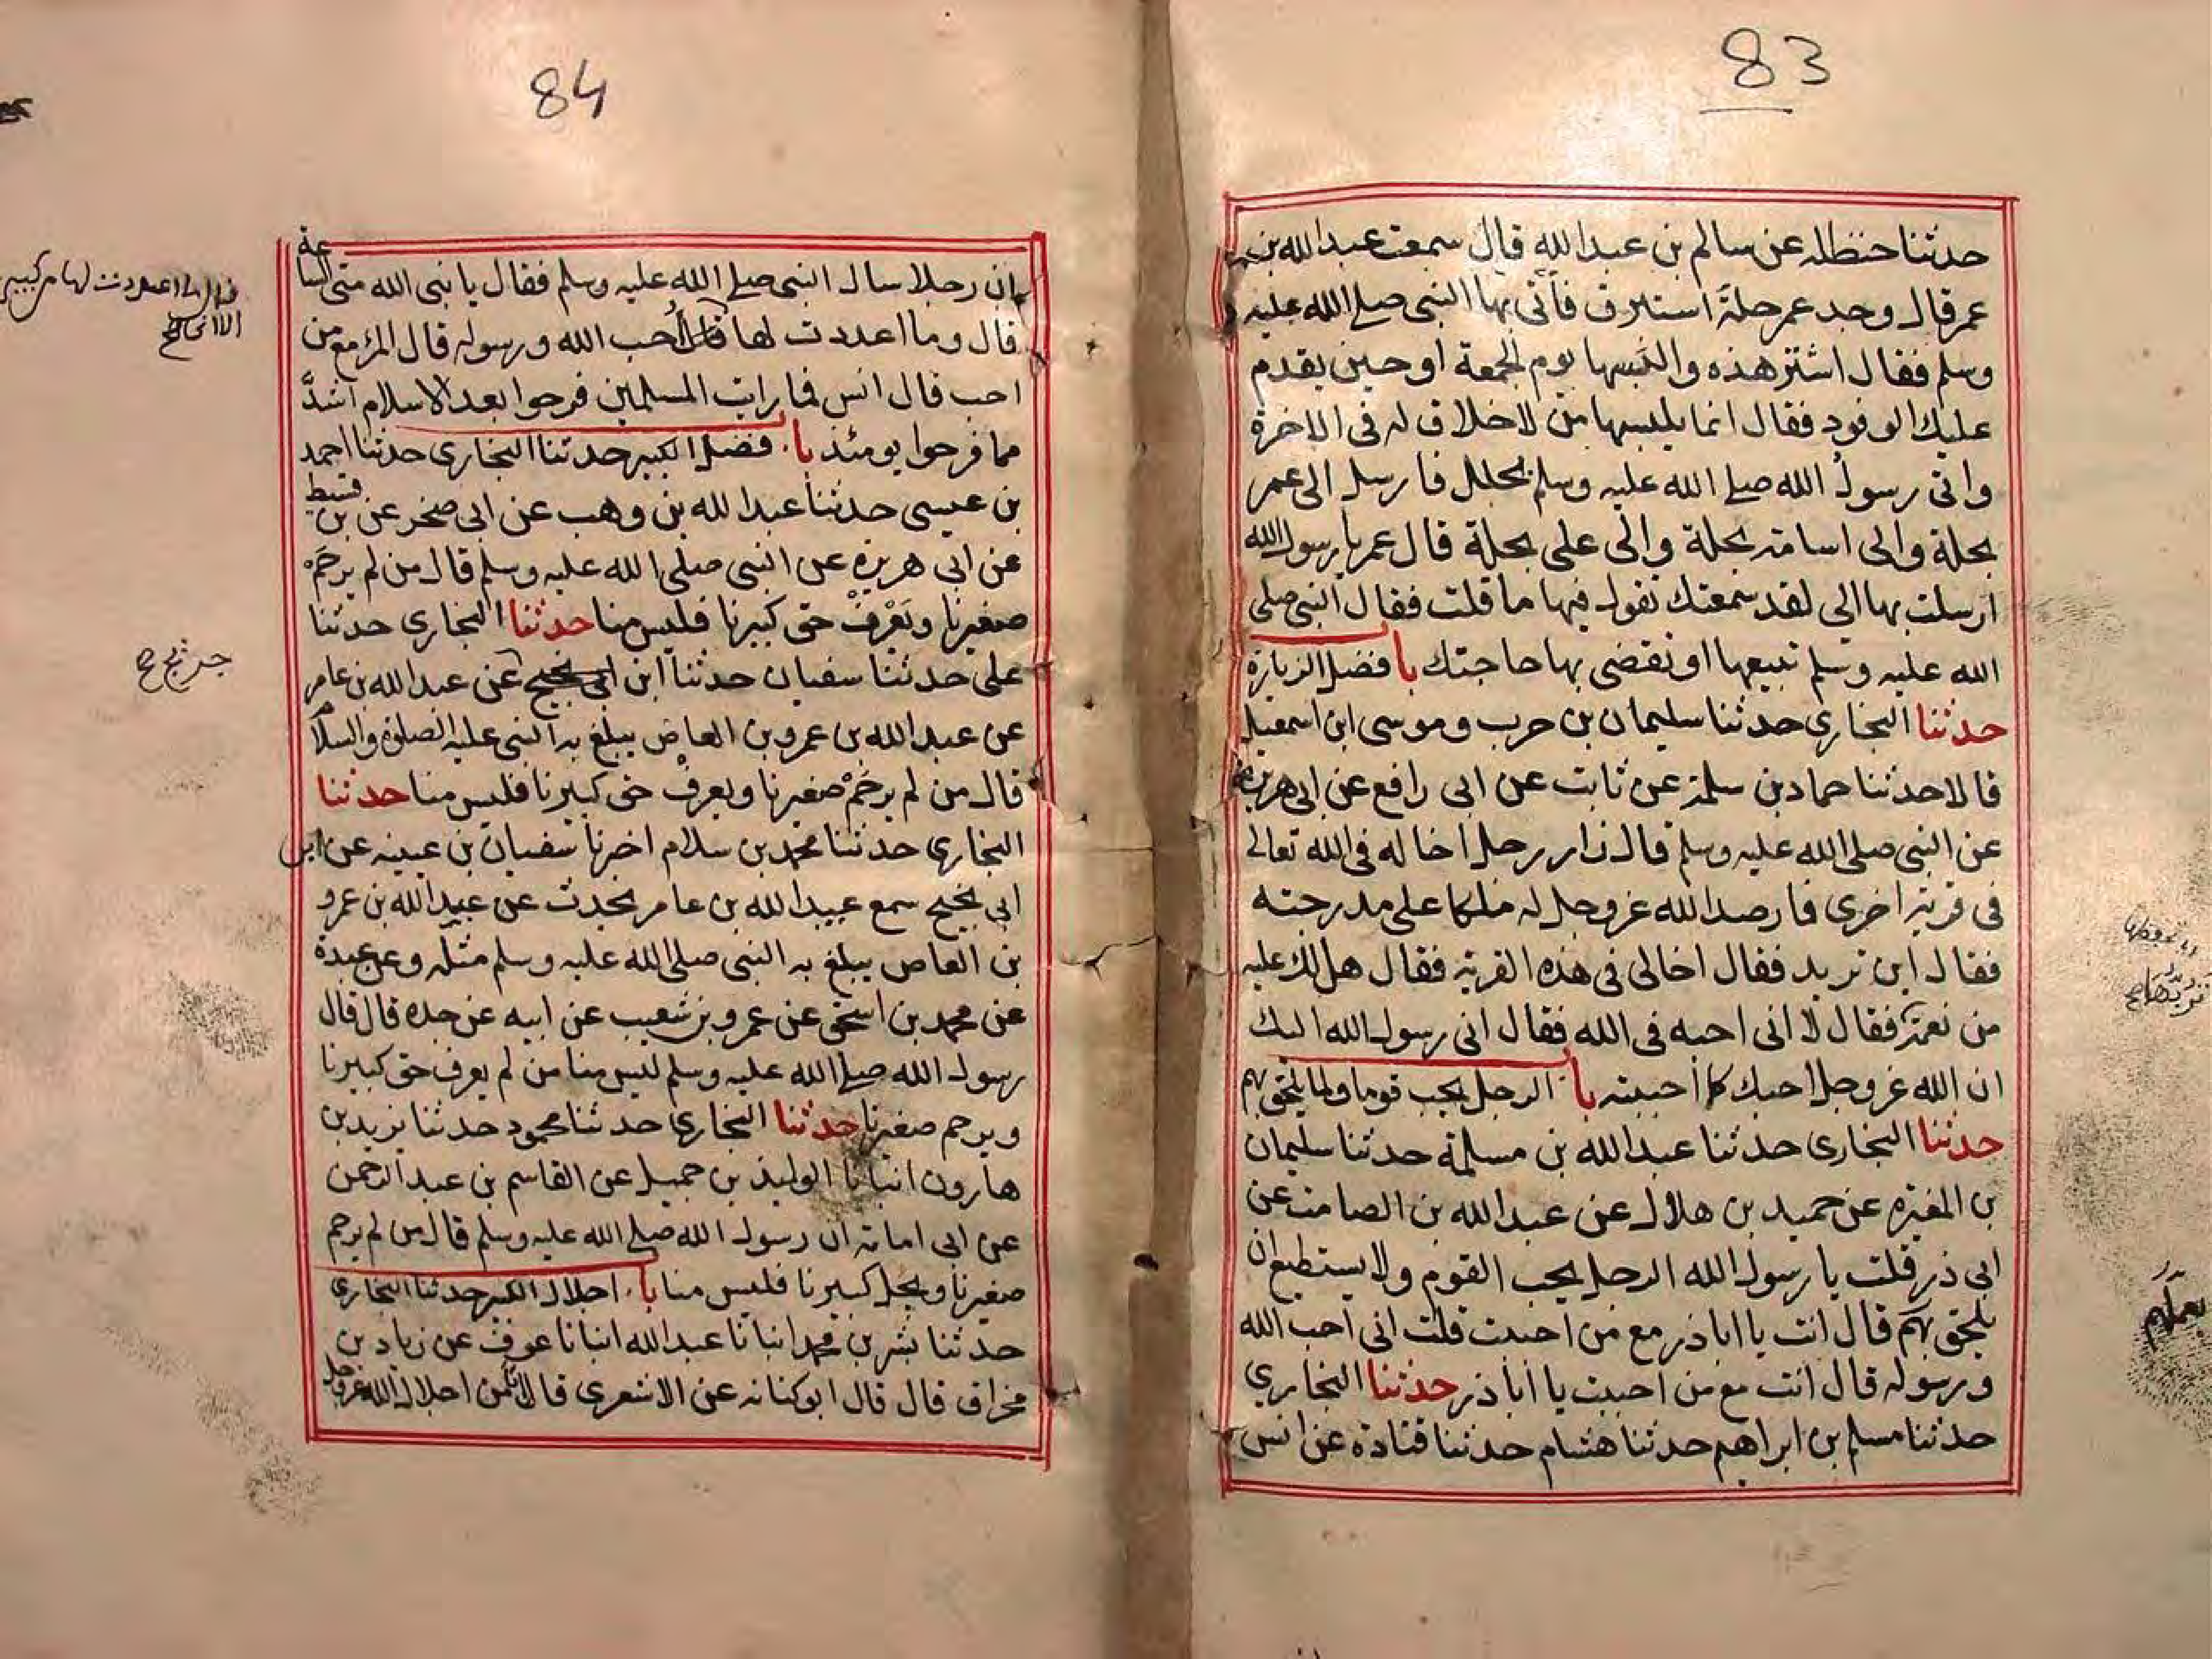 83
حدثنا حنظله عن سالم بن عبد الله قال سمعت عبد الله بن
عمر قال وجد عمر حلة استبرق فأتى بها النبى صلى الله عليه
وسلم فقال اشتر هذه والبسها يوم الجمعة او حين يقدم
عليك الوفود فقال انما يلبسها من لا خلاق له فى الاخرة
واتى رسول الله صلى الله عليه وسلم بحلل فارسل الى عمر
بحلة والى اسامة بحلة والى على بحلة قال عمر يا رسول الله
ارسلت بها الى لقد سمعتك تقول فيها ما قلت فقال النبى صلى
الله عليه وسلم تبيعها او تقضى بها حاجتك با فضل الزيارة
حدثنا البخارى حدثنا سليمان بن حرب وموسى ابن اسمعيل
قالا حدثنا حماد بن سلمة عن ثابت عن ابى رافع عن ابى هريرة
عن النبى صلى الله عليه وسلم قال زار رجل اخا له فى الله تعالى
فى قرية اخرى فارصد الله عز وجل له ملكا على مدرجته
فقال اين تريد فقال اخا لى فى هذه القرية فقال هل لك عليه
من نعمة فقال لا انى احبه فى الله فقال انى رسول الله اليك
ان الله عز وجل احبك كما احببته با الرجل يحب قوما ولما يلحق بهم
حدثنا البخارى حدثنا عبد الله بن مسلمة حدثنا سليمان
بن المغيره عن حميد بن هلال عن عبد الله بن الصامت عن
ابى ذر قلت يا رسول الله الرجل يحب القوم ولا يستطيع ان
يلحق بهم قال انت يا ابا ذر مع من احببت قلت انى احب الله
ورسوله قال انت مع من احببت يا ابا ذر حدثنا البخاري
حدثنا مسلم بن ابراهيم حدثنا هشام حدثنا قتادة عن انس
84
ان رجلا سال النبى صلى الله عليه وسلم فقال يا نبى الله متى الساعة
قال وما اعددت لها قال احب الله ورسوله قال المرء مع من
احب قال انس فما رايت المسلمين فرحوا بعد الاسلام اشدّ
مما فرحوا يومئذ با فضل الكبير حدثنا البخارى حدثنا احمد
بن عيسى حدثنا عبد الله بن وهب عن ابى صخر عن بن قسيط
عن ابى هريره عن النبى صلى الله عليه وسلم قال من لم يرحم
صغيرنا ويعرف حق كبيرنا فليس منا حدثنا البخارى حدثنا
على حدثنا سفيان حدثنا ابن ابى نجيح عن عبد الله بن عامر
عن عبد الله بن عمرو بن العاص يبلغ به النبى عليه الصلوة والسلام
قال من لم يرحم صغيرنا ويعرف حق كبيرنا فليس منا حدثنا
البخارى حدثنا محمد بن سلام اخبرنا سفيان بن عيينه عن ابن
ابى نجيح سمع عبيد الله بن عامر يحدث عن عبد الله بن عمرو
بن العاص يبلغ به النبى صلى الله عليه وسلم مثله وعن عبدة
عن محمد بن اسحق عن عمرو بن شعيب عن ابيه عن جده قال قال
رسول الله صلى الله عليه وسلم ليس منا من لم يعرف حق كبيرنا
ويرحم صغيرنا حدثنا البخارى حدثنا محمود حدثنا يزيد بن
هارون انبانا الوليد بن جميل عن القاسم بن عبد الرحمن
عن ابى امامة ان رسول الله صلى الله عليه وسلم قال من لم يرحم
صغيرنا ويجل كبيرنا فليس منا با اجلال الكبير حدثنا البخارى
حدثنا بشر بن محمد انبانا عبد الله انبانا عوف عن زياد بن
مخراق قال قال ابو كنانه عن الاشعرى قال ان من اجلال الله عز وجل